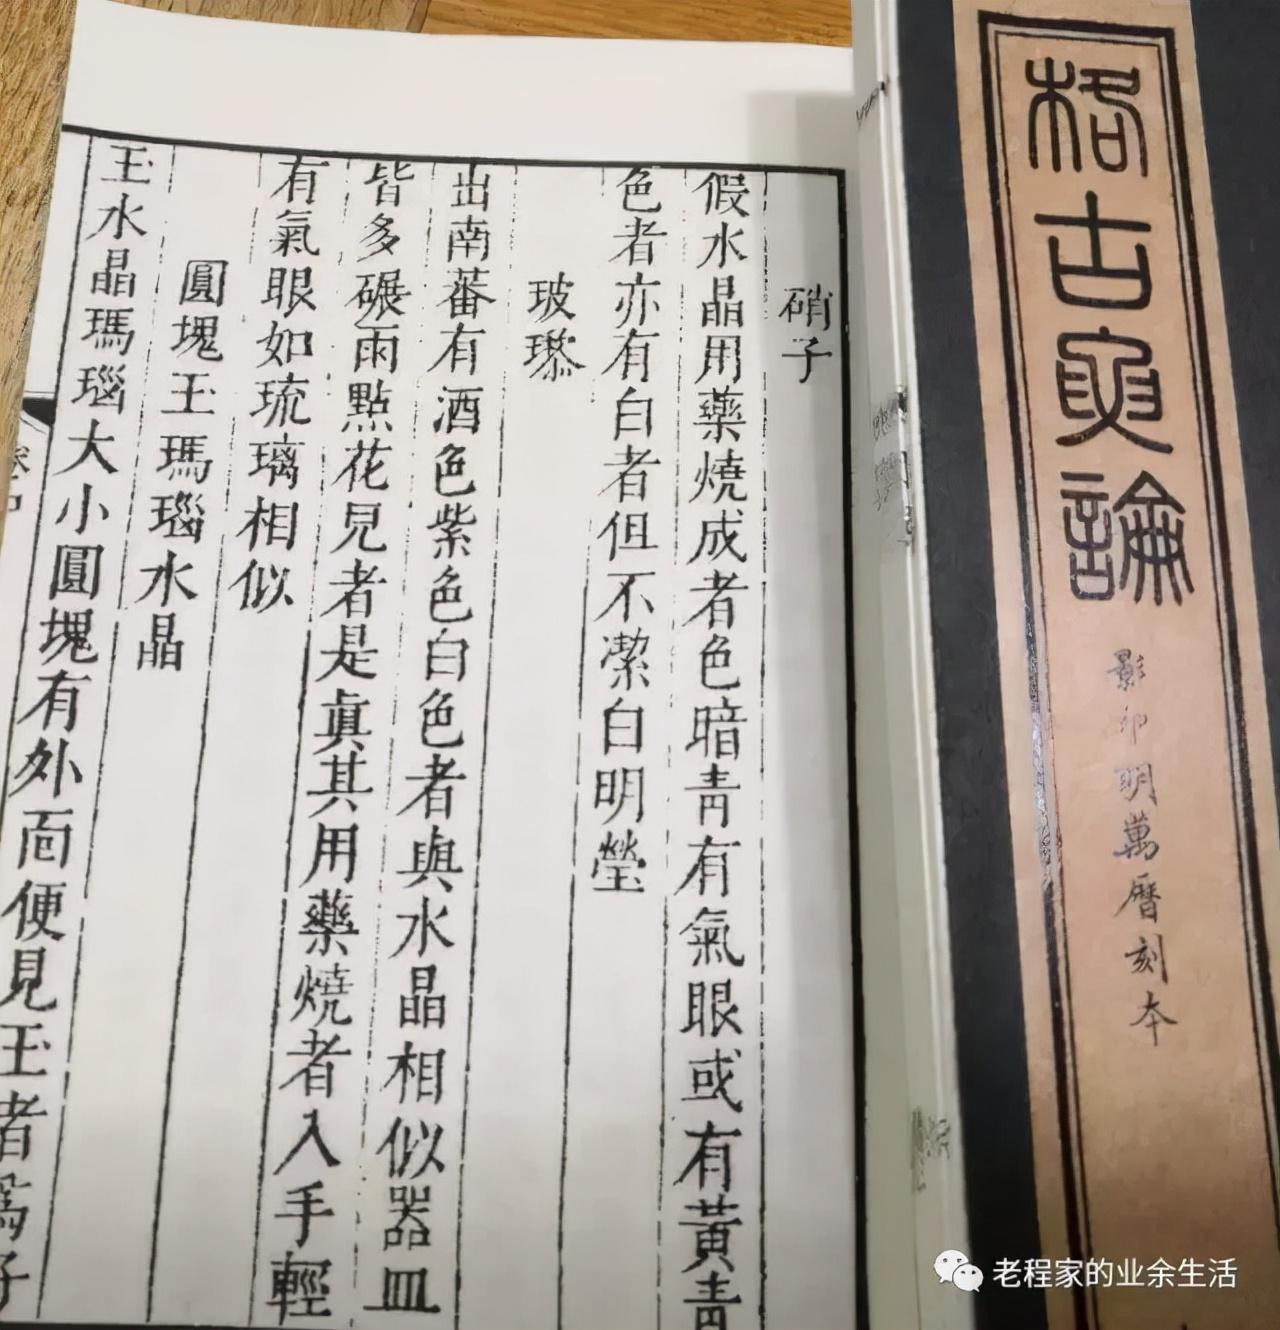 格古要論
影印明萬曆刻本
硝子
假水晶用藥燒成者色暗青有氣眼或有黃青
色者亦有白者但不潔白明瑩
玻瓈
出南蕃有酒色紫色白色者與水晶相似器皿
皆多碾雨點花見者是眞其用藥燒者入手輕
有氣眼如琉璃相似
圓塊玉瑪瑙水晶
玉水晶瑪瑙大小圓塊有外面便見玉者為子
老程家的业余生活